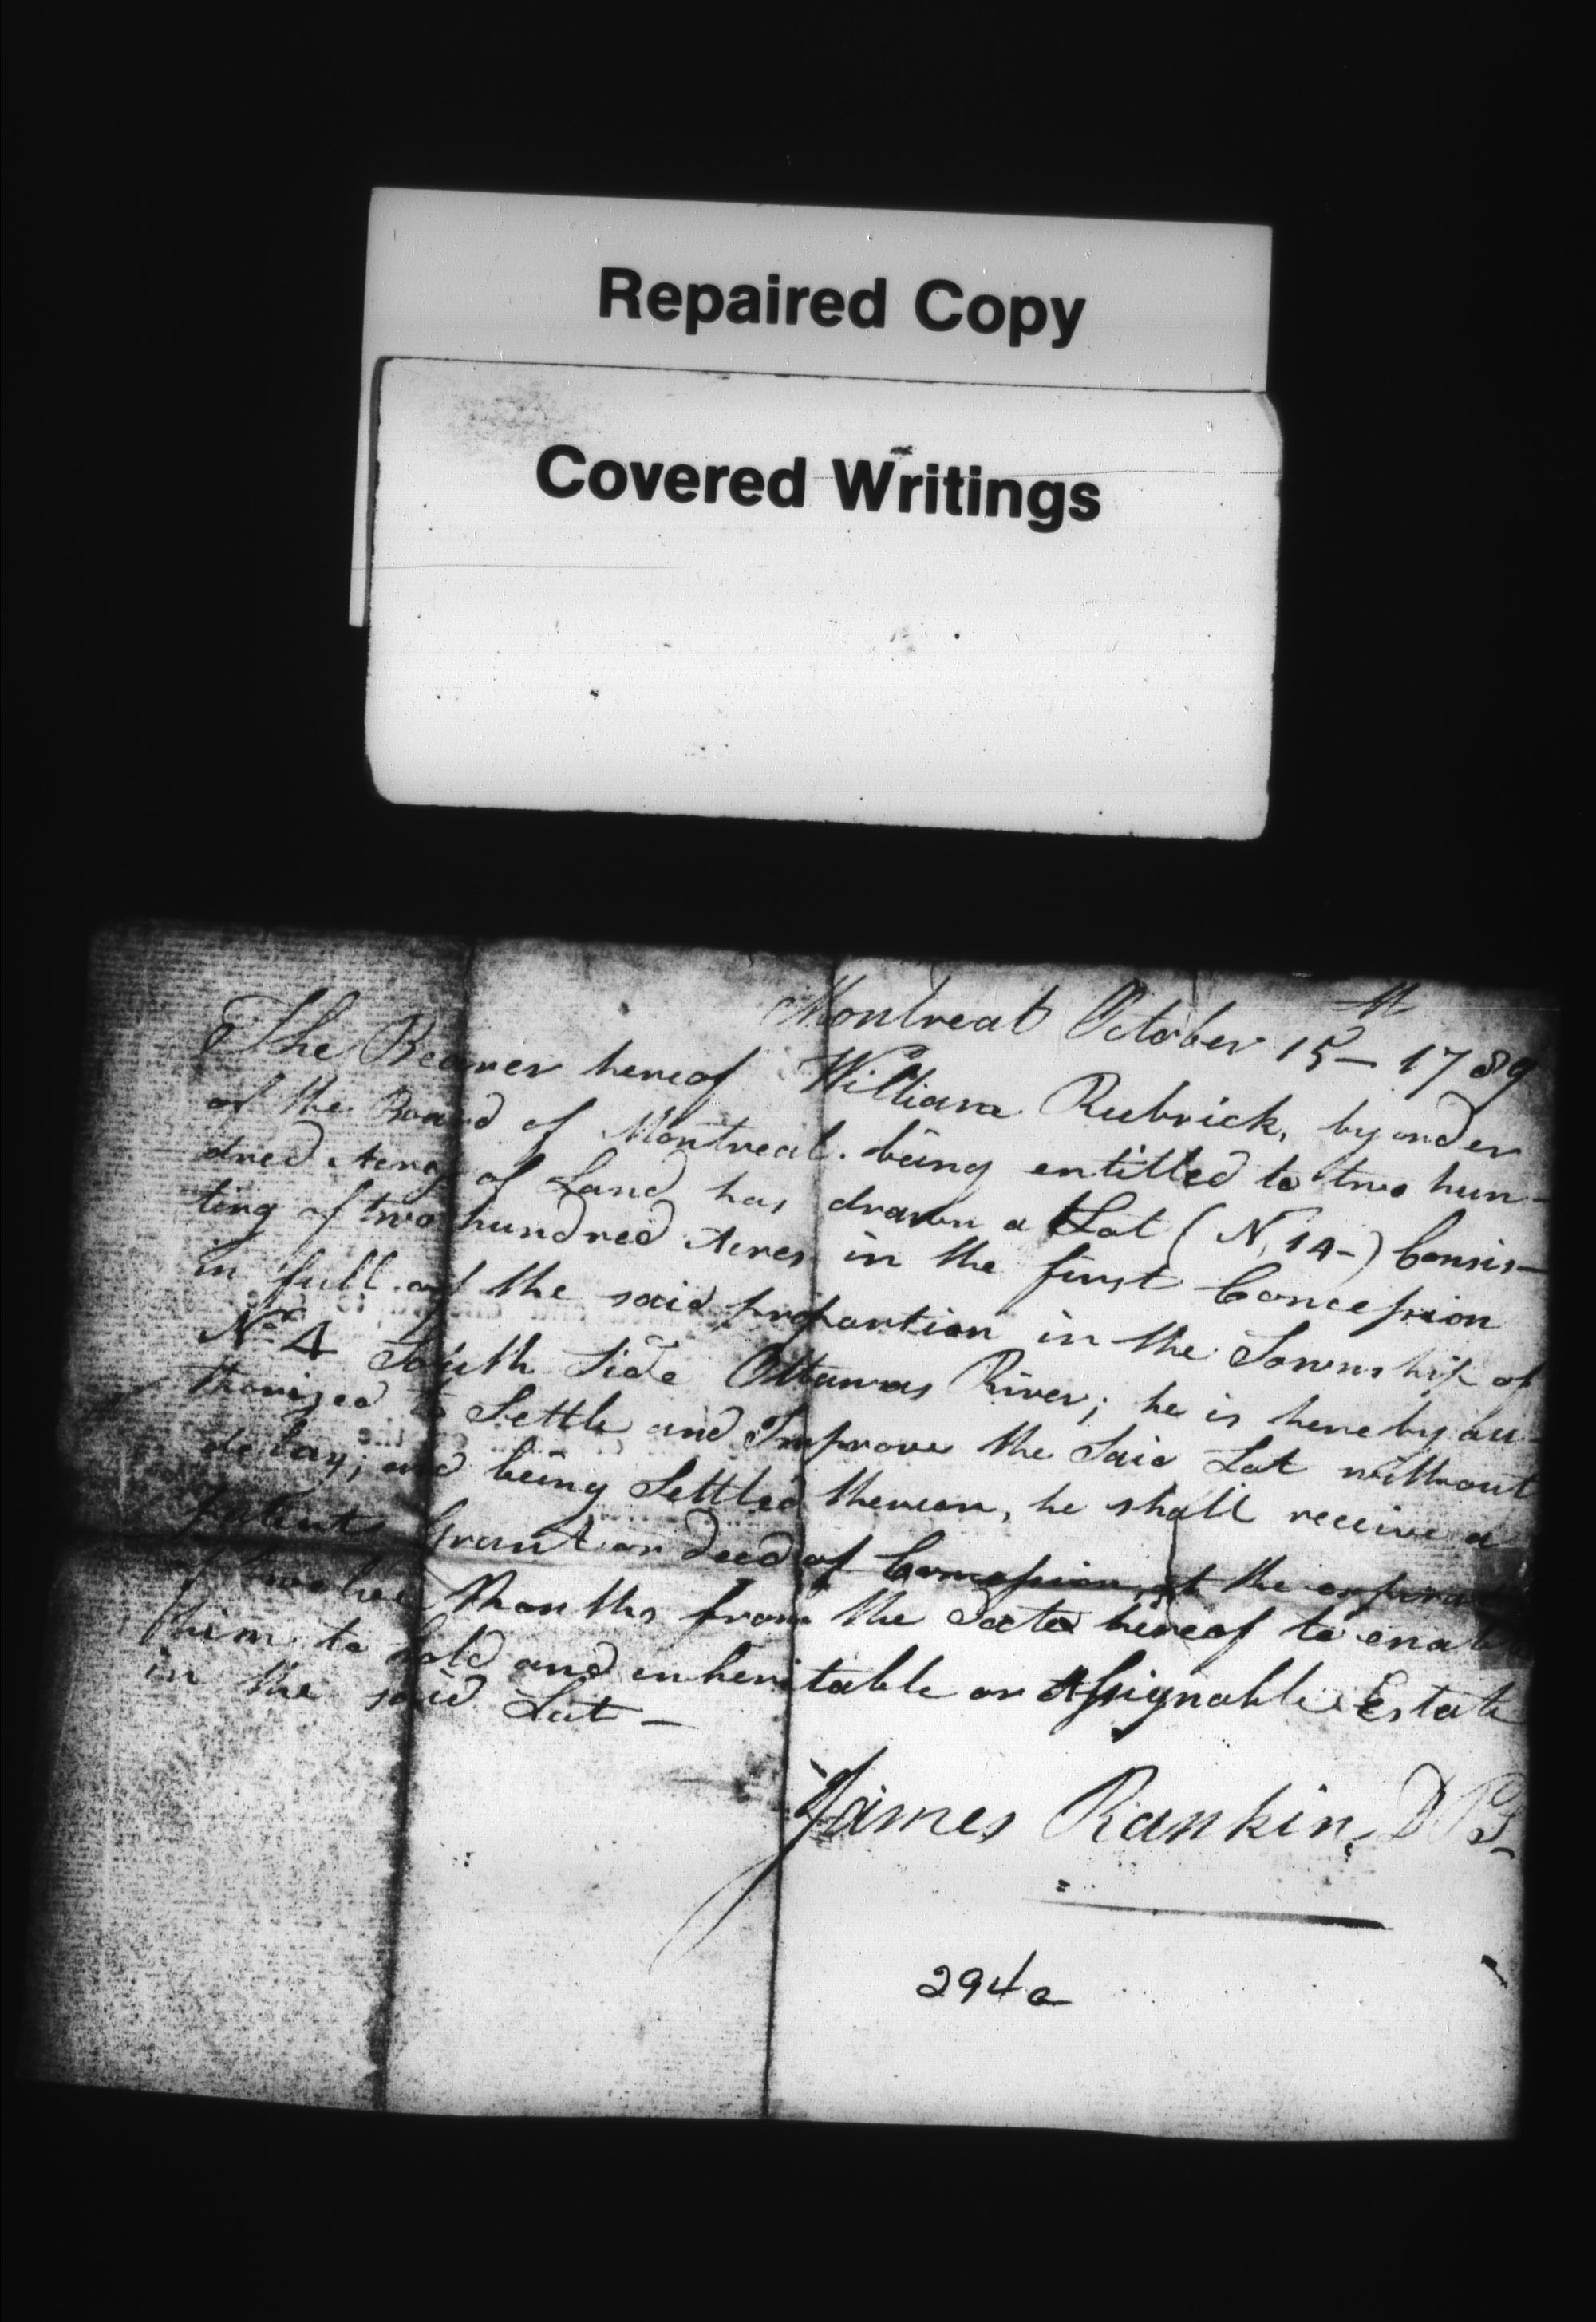 Repaired Copy
Covered Writings
Montreal October 15th 1789
The Bearer hereof William Rubrick, by order
of the Board of Montreal. being entitled to two hun-
dred Acres of Land has drawn a Lot (N. 14-) Consis-
ting of two hundred Acres in the first Concession
in full of the said proportion in the Township of
No 4 South Side Ottawas River; he is hereby au-
thorised to Settle and Improve the Said Lot without
delay; and being Settled thereon, he shall receive a
patent Grant or deed of Concession, at the
of twelve Months from the date hereof to enable
him to hold and inheritable or Assignable Estate
in the said Lot -
James Rankin, D P S
294a